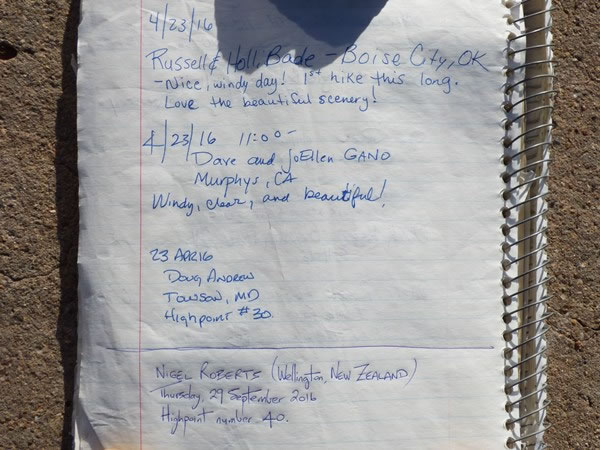 4/23/16
Russell & Holli Bade - Boise City, OK
- Nice, windy day! 1st hike this long.
Love the beautiful scenery!
4/23/16 11:00 -
Dave and JoEllen GANO
Murphys, CA
Windy, clear, and beautiful!
23 APR 16
DOUG ANDREW
TOWSON, MD
HIGHPOINT #30.
NIGEL ROBERTS (Wellington, NEW ZEALAND)
Thursday, 29 September 2016
Highpoint number 40.